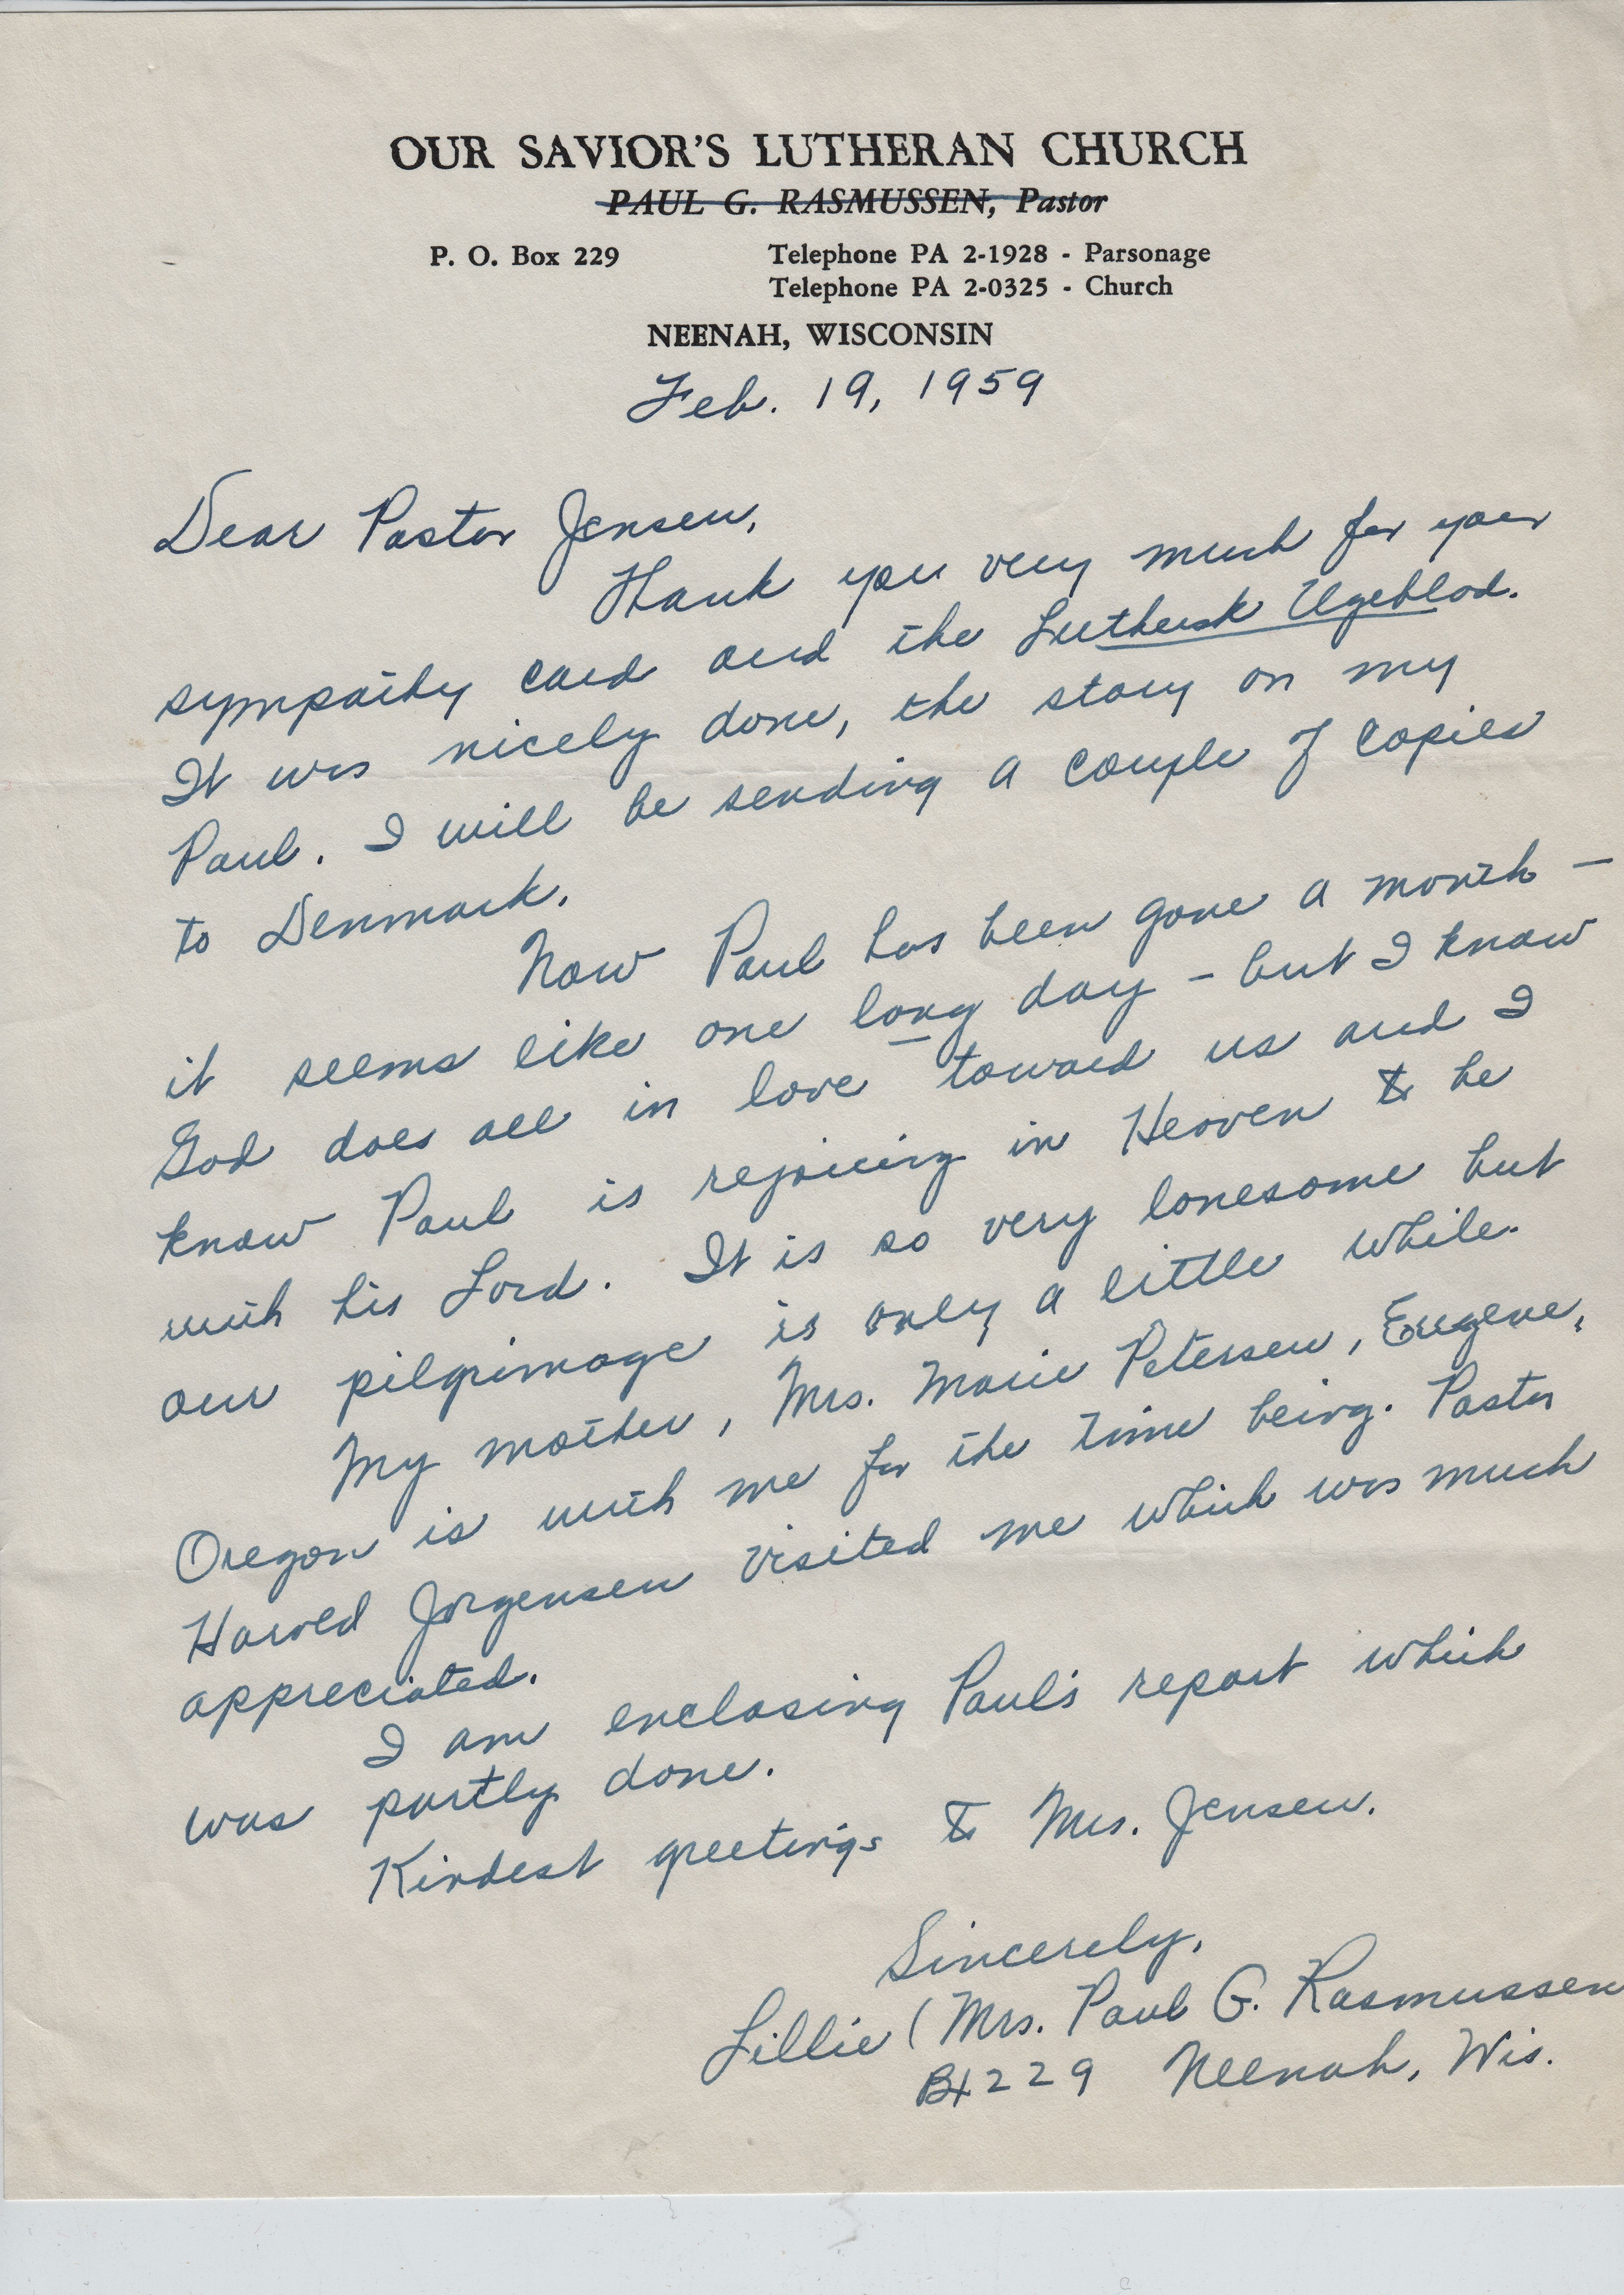 OUR SAVIOR'S LUTHERAN CHURCH
PAUL G. RASMUSSEN, Pastor
P. O. Box 229 Telephone PA 2-1928 - Parsonage
Telephone PA 2-0325 - Church
NEENAH, WISCONSIN
Feb. 19, 1959
Dear Pastor Jensen,
Thank you very much for your
sympathy card and the Luthersk Ugeblad.
It was nicely done, the story on my
Paul. I will be sending a couple of copies
to Denmark.
Now Paul has been gone a month -
it seems like one long day - but I know
God does all in love toward us and I
know Paul is rejoicing in Heaven to be
with his Lord. It is so very lonesome but
our pilgrimage is only a little while.
My mother, Mrs. Marie Petersen, Eugene,
Oregon is with me for the time being. Pastor
Harved Jorgensen visited me which was much
appreciated.
I am enclosing Paul's report which
was partly done.
Kindest greetings to Mrs. Jensen.
Sincerely,
Lillie (Mrs. Paul G. Rasmussen
Bx 229 Neenah, Wis.